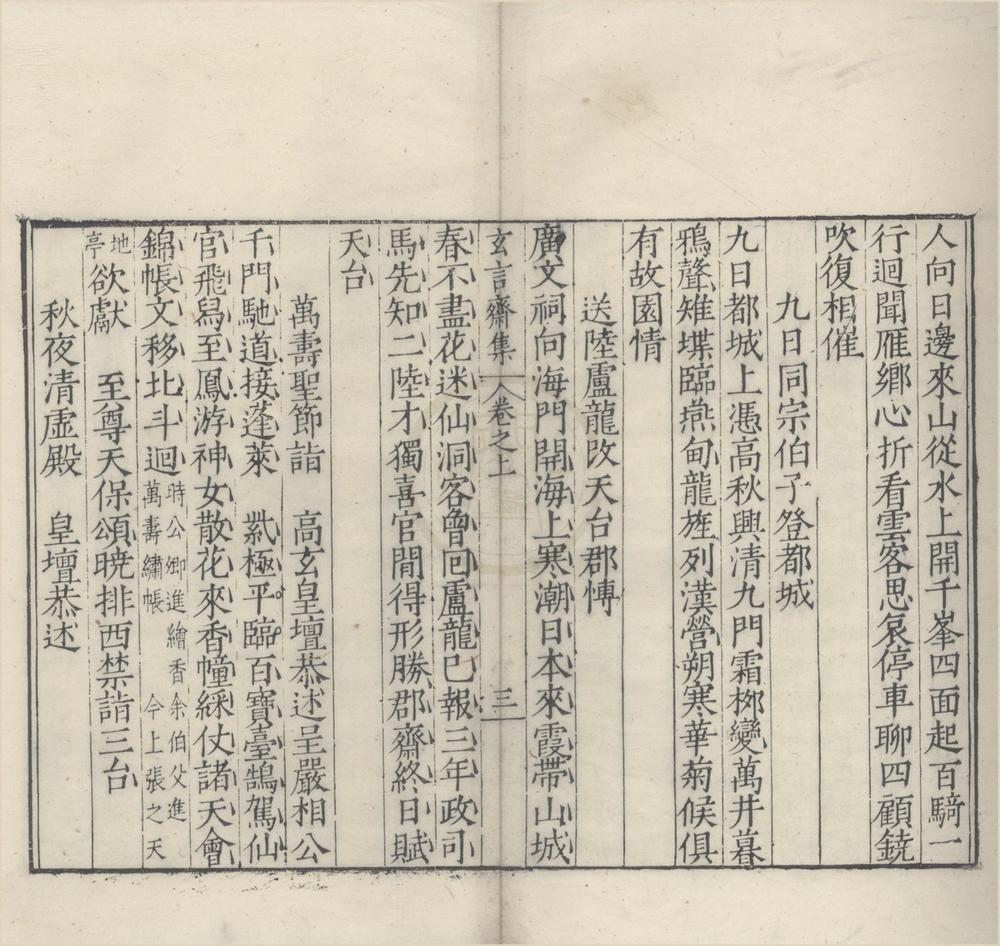 人向日邊來山從水上開千峯四面起百騎一
行迴聞雁鄉心折看雲客思哀停車聊四顧鐃
吹復相催
九日同宗伯子登都城
九日都城上憑高秋興清九門霜栁變萬井暮
鴉聲雉堞臨燕甸龍旌列漢營朔寒華菊候俱
有故園情
送陸盧龍改天台郡慱
廣文祠向海門開海上寒潮日本來霞帶山城
玄言齋集 卷之上 三
春不盡花迷仙洞客曾回盧龍已報三年政司
馬先知二陸才獨喜官閒得形勝郡齋終日賦
天台
萬壽聖節詣 高玄皇壇恭述呈嚴相公
千門馳道接蓬萊 紫極平臨百寶臺鵠駕仙
官飛舄至鳳游神女散花來香幢綵仗諸天會
錦帳文移北斗迴時公卿進繪香余伯父進萬壽繡帳 今上張之天
地亭欲獻 至尊天保頌曉排西禁詣三台
秋夜清虛殿 皇壇恭述